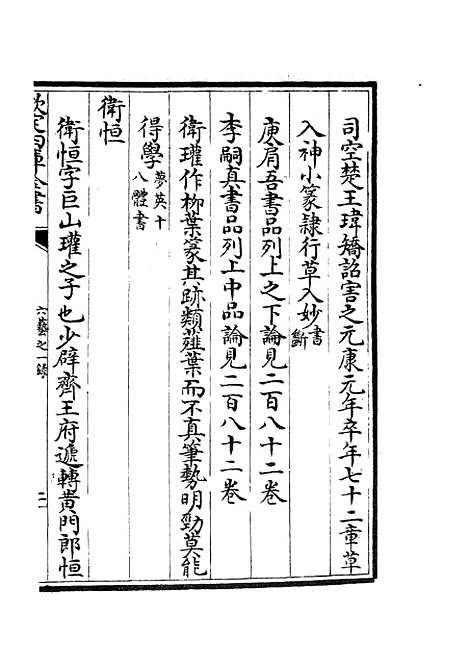 司空楚王瑋矯詔害之元康元年卒年七十二章草
入神小篆隸行草入妙書斷
庾肩吾書品列上之下論見二百八十二卷
李嗣真書品列上中品論見二百八十二卷
衛瓘作柳葉篆其跡類薤葉而不真筆勢明勁莫能
得學夢英十八體書
衛恒
衛恒字巨山瓘之子也少辟齊王府遞轉黄門郎恒
欽定四庫全書
六藝之一録
二